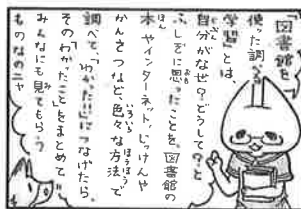 「図書館を
使った調べる
学習」とは、
自分がなぜ？どうして？と
ふしぎに思ったことを、図書館の
本やインターネット、じっけんや
かんさつなど、色々な方法で
調べて、「わかった!!」につなげたら、
そのわかったことをまとめて
みんなにも見てもらう
ものなのニャ